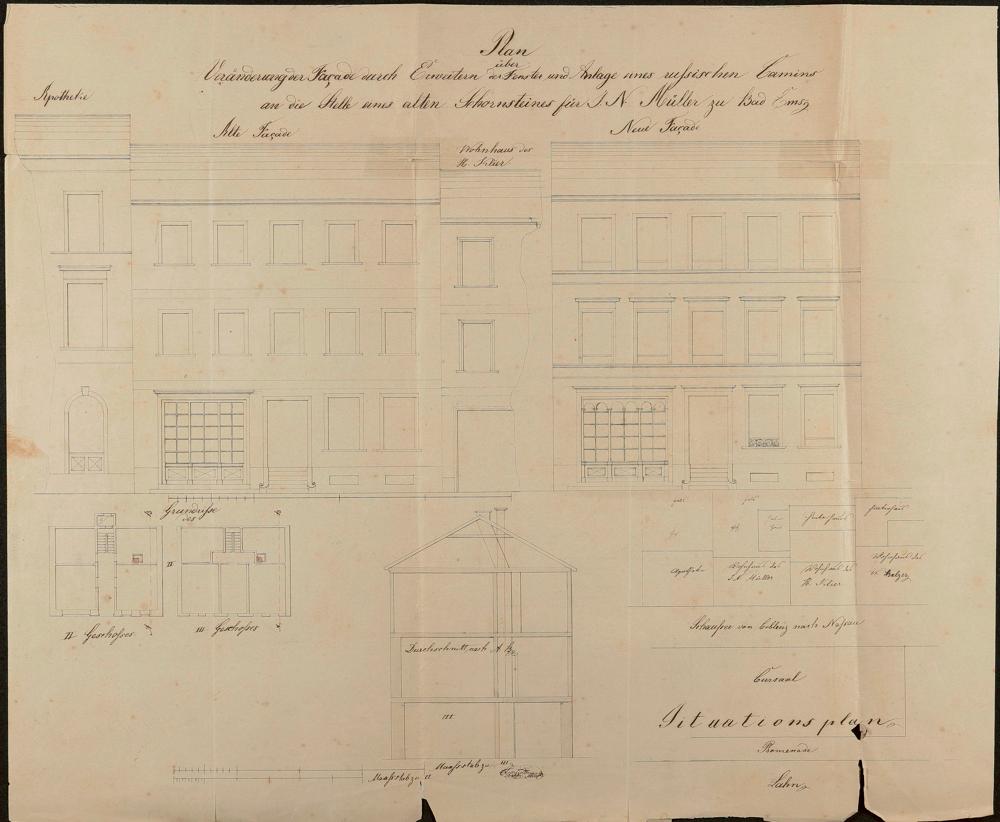 Plan
über
Veränderung der Façade durch Erweitern der Fenster und Anlage eines russischen Camins
an die Stelle eines alten Schornsteines für J. N. Müller zu Bad Ems
Apotheke
Alte Façade
Wohnhaus des
H.
Neue Façade
Grundrisse
des
II Geschosses
III Geschosses
II
Durchschnitt nach A B
III
Maassstab zu II
Maassstab zu III
Hof
Apotheke
Wohnhaus des
J. N. Müller
Hinterhaus
Wohnhaus des
H.
Hinterhaus
Wohnhaus des
H. Balzer
Schaussee von Coblenz nach Nassau
Cursaal
Situationsplan
Promenade
Lahn